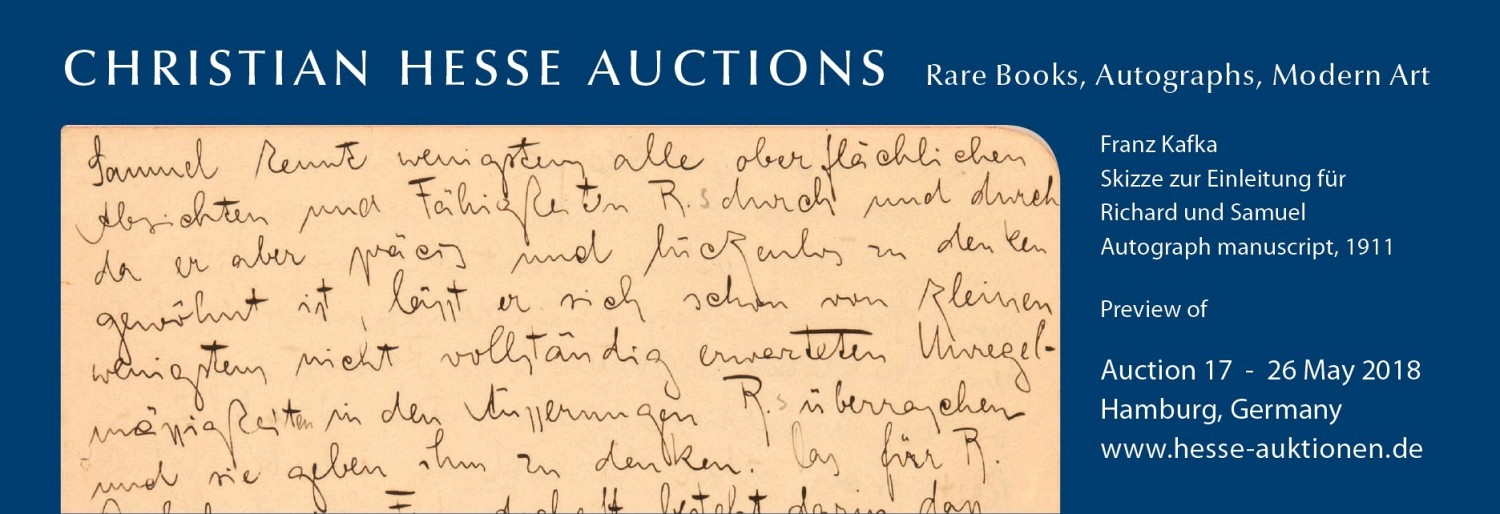 CHRISTIAN HESSE AUCTIONS Rare Books, Autographs, Modern Art
Samuel kennt wenigstens alle oberflächlichen
Absichten und Fähigkeiten R.s durch und durch
da er aber präcis und lückenlos zu denken
gewöhnt ist, lässt er sich schon von kleinen
wenigstens nicht vollständig erwarteten Unregel-
mässigkeiten in den Äusserungen R.s überraschen
und sie geben ihm zu denken. Das für R.
besteht darin dass
Franz Kafka
Skizze zur Einleitung für
Richard und Samuel
Autograph manuscript, 1911
Preview of
Auction 17 - 26 May 2018
Hamburg, Germany
www.hesse-auktionen.de